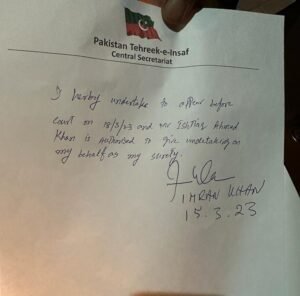 Pakistan Tehreek-e-Insaf
Central Secretariat
I herby undertake to appear before
court on 18/3/23 and mr Ishtiaq Ahmad
Khan is authorised to give undertaking on
my behalf as my surety.
IMRAN KHAN
15.3.23